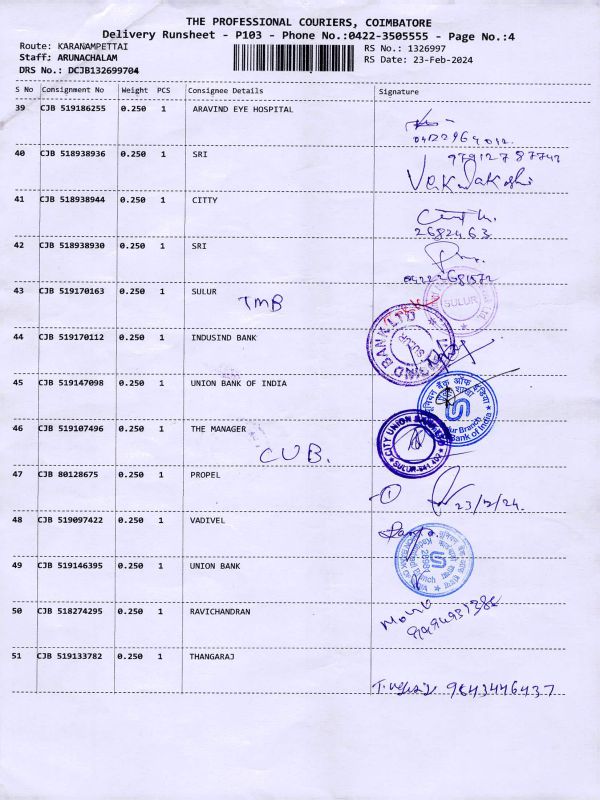 THE PROFESSIONAL COURIERS, COIMBATORE
Delivery Runsheet - P103 - Phone No.:0422-3505555 - Page No.:4
Route: KARANAMPETTAI
RS No.: 1326997
Staff: ARUNACHALAM
RS Date: 23-Feb-2024
DRS No.: DCJB132699704
S No Consignment No Weight PCS Consignee Details Signature
39 CJB 519186255 0.250 1 ARAVIND EYE HOSPITAL
40 CJB 518938936 0.250 1 SRI
41 CJB 518938944 0.250 1 CITTY
2682463
42 CJB 518938930 0.250 1 SRI
43 CJB 519170163 0.250 1 SULUR
TMB
SULUR
44 CJB 519170112 0.250 1 INDUSIND BANK
SULUR
45 CJB 519147098 0.250 1 UNION BANK OF INDIA
46 CJB 519107496 0.250 1 THE MANAGER
CUB.
CITY UNION BANK
SULUR-641 402
47 CJB 80128675 1 PROPEL
1 23/2/24.
48 CJB 519097422 0.250 1 VADIVEL
49 CJB 519146395 0.250 1 UNION BANK
50 CJB 518274295 0.250 1 RAVICHANDRAN
51 CJB 519133782 0.250 1 THANGARAJ
9843446437